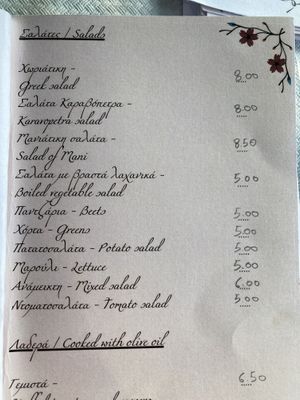 Σαλάτες / Salads
Χωριάτικη - 8.00
Greek salad
Σαλάτα Καραβόπετρα - 8.00
Karavopetra salad
Μανιάτικη σαλάτα - 8.50
Salad of Mani
Σαλάτα με βραστά λαχανικά - 5.00
Boiled vegetable salad
Παντζάρια - Beets 5.00
Χόρτα - Greens 5.00
Πατατοσαλάτα - Potato salad 5.00
Μαρούλι - Lettuce 5.00
Ανάμεικτη - Mixed salad 6.00
Ντοματοσαλάτα - Tomato salad 5.00
Λαδερά / Cooked with olive oil
Γεμιστά - 6.50